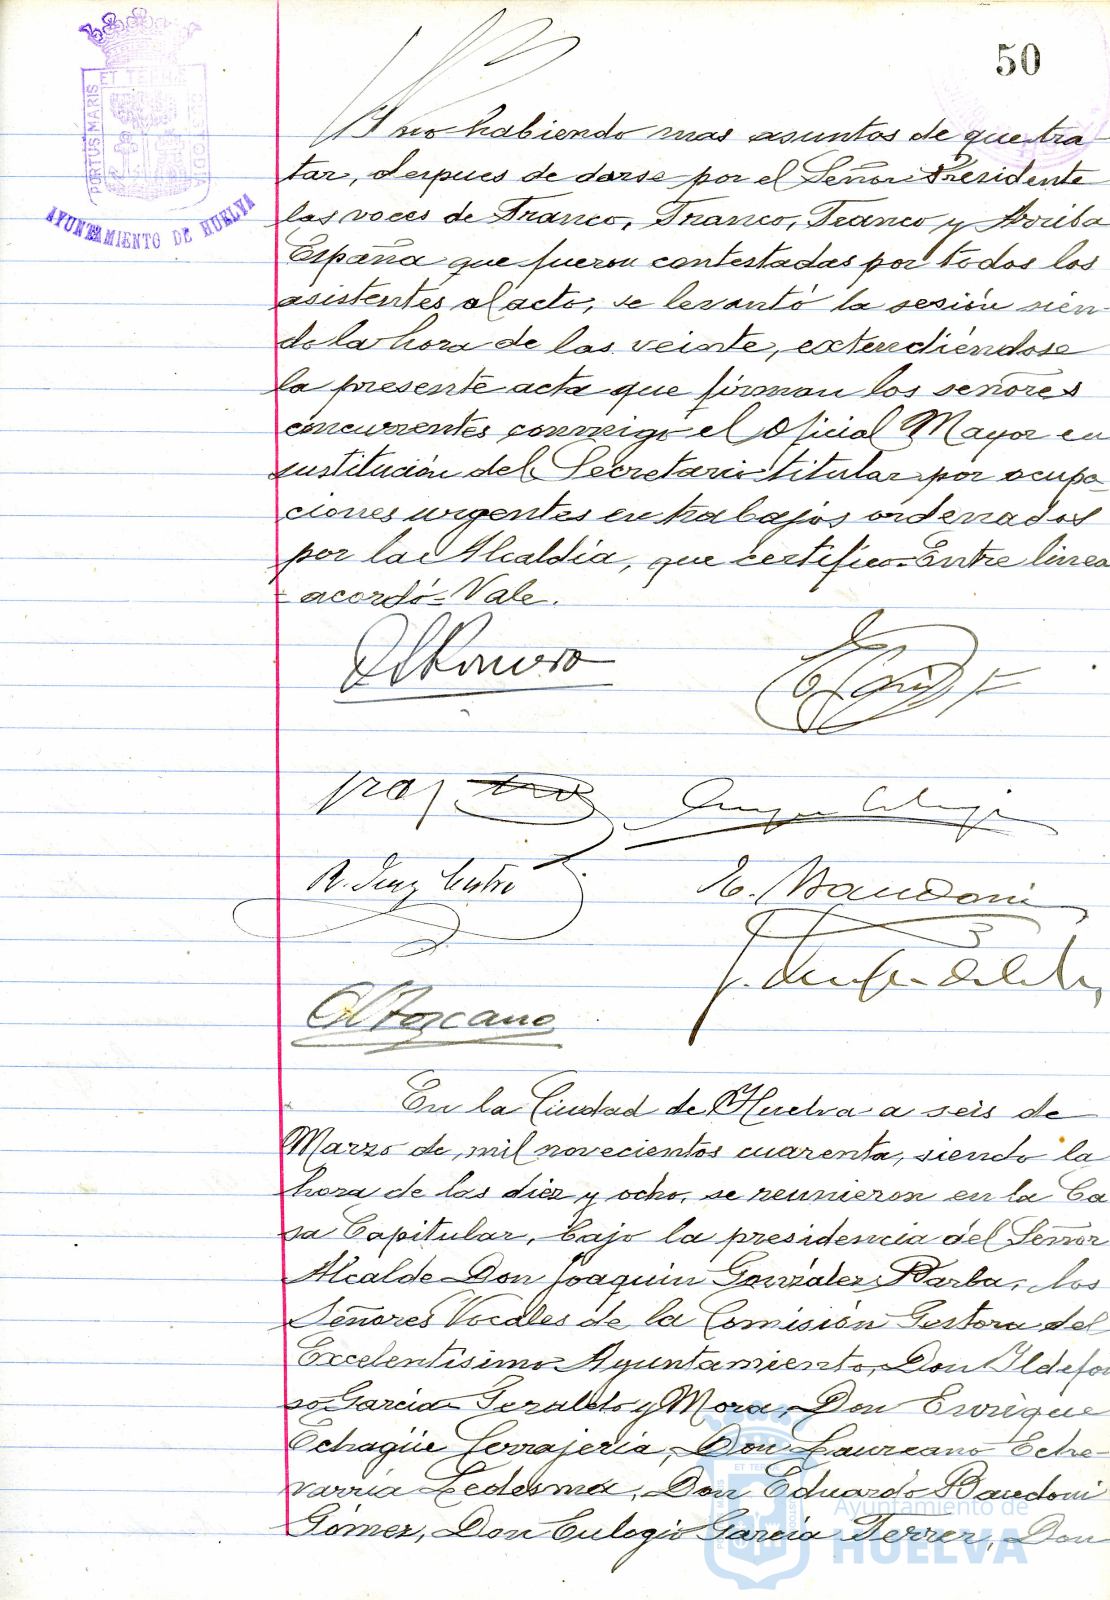 50
ET TERRÆ
PORTUS MARIS
CUSTODIA
AYUNTAMIENTO DE HUELVA
Y no habiendo mas asuntos de que tra-
tar, despues de darse por el Señor Presidente
las voces de Franco, Franco, Franco y Arriba
España que fueron contestadas por todos los
asistentes al acto, se levantó la sesión sien-
do la hora de las veinte, extendiéndose
la presente acta que firman los señores
concurrentes conmigo el Oficial Mayor en
sustitución del Secretario titular por ocupa-
ciones urgentes en trabajos ordenados
por la Alcaldía, que certifico=Entre linea
-acordó=Vale.
Romero
R. Diaz Castro
E. Baudoni
Toscano
En la Ciudad de Huelva a seis de
Marzo de mil novecientos cuarenta, siendo la
hora de las diez y ocho, se reunieron en la Ca
sa Capitular, bajo la presidencia del Señor
Alcalde Don Joaquin González Barba, los
Señores Vocales de la Comisión Gestora del
Excelentísimo Ayuntamiento, Don Ildefon
so Garcia Geraldo y Mora, Don Enrique
Echagüe Cerrajeria, Don Laureano Eche-
varria Ledesma, Don Eduardo Baudoni
Gómez, Don Eulogio Garcia Ferrer, Don
Ayuntamiento de
HUELVA